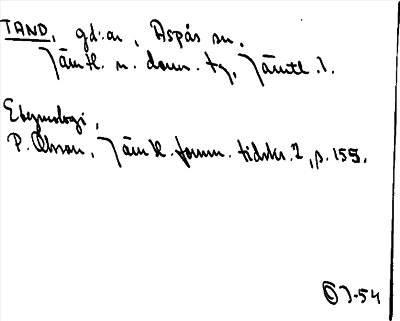 TAND, gd:an, Aspås sn.
Jämtl. n. doms. tg, Jämtl. l.
Etymologi,
P. Olsson, Jämtl. fornm. tidskr. 2, s. 155.
OJ-54